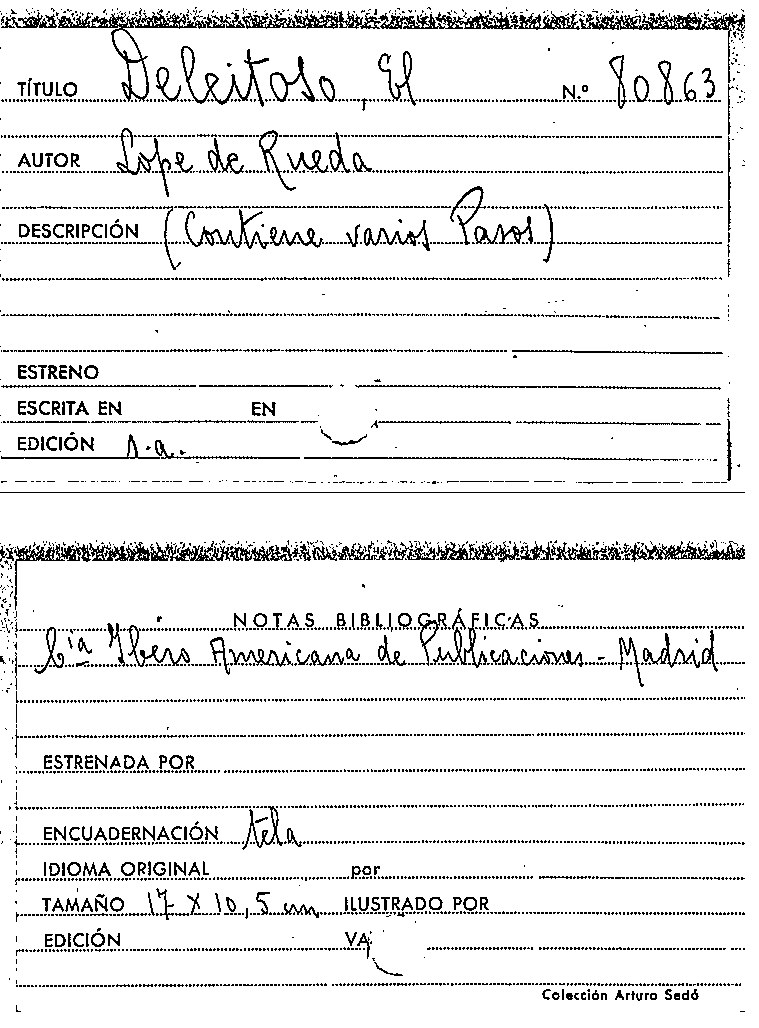 TÍTULO Deleitoso, El N.º 80863
AUTOR Lope de Rueda
DESCRIPCIÓN (Contiene varios Pasos)
ESTRENO
ESCRITA EN EN
EDICIÓN s.a.
NOTAS BIBLIOGRÁFICAS
Cía Ibero Americana de Publicaciones - Madrid
ESTRENADA POR
ENCUADERNACIÓN tela
IDIOMA ORIGINAL por
TAMAÑO 17 X 10,5 cm ILUSTRADO POR
EDICIÓN VA
Colección Arturo Sedó